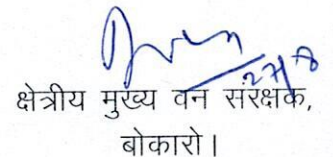 27/8
क्षेत्रीय मुख्य वन संरक्षक,
बोकारो।